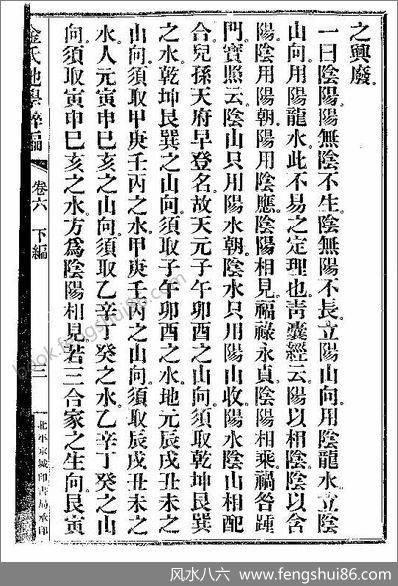 之興廢
一曰陰陽陽無陰不生陰無陽不長立陽山向用陰龍水立陰
山向用陽龍水此不易之定理也靑囊經云陽以相陰陰以含
陽陰用陽朝陽用陰應陰陽相見福祿永貞陰陽相乘禍咎踵
門寶照云陰山只用陽水朝陰水只用陽山收陽水陰山相配
合兒孫天府早登名故天元子午卯酉之山向須取乾坤艮巽
之水乾坤艮巽之山向須取子午卯酉之水地元辰戌丑未之
山向須取甲庚壬丙之水甲庚壬丙之山向須取辰戌丑未之
水人元寅申巳亥之山向須取乙辛丁癸之水乙辛丁癸之山
向須取寅申巳亥之水方爲陰陽相見若三合家之生向艮寅
金氏地學粹編 卷六 下編 三 北平京城印書局承印
book.fengshui86.com
风水八六 - www.fengshui86.com